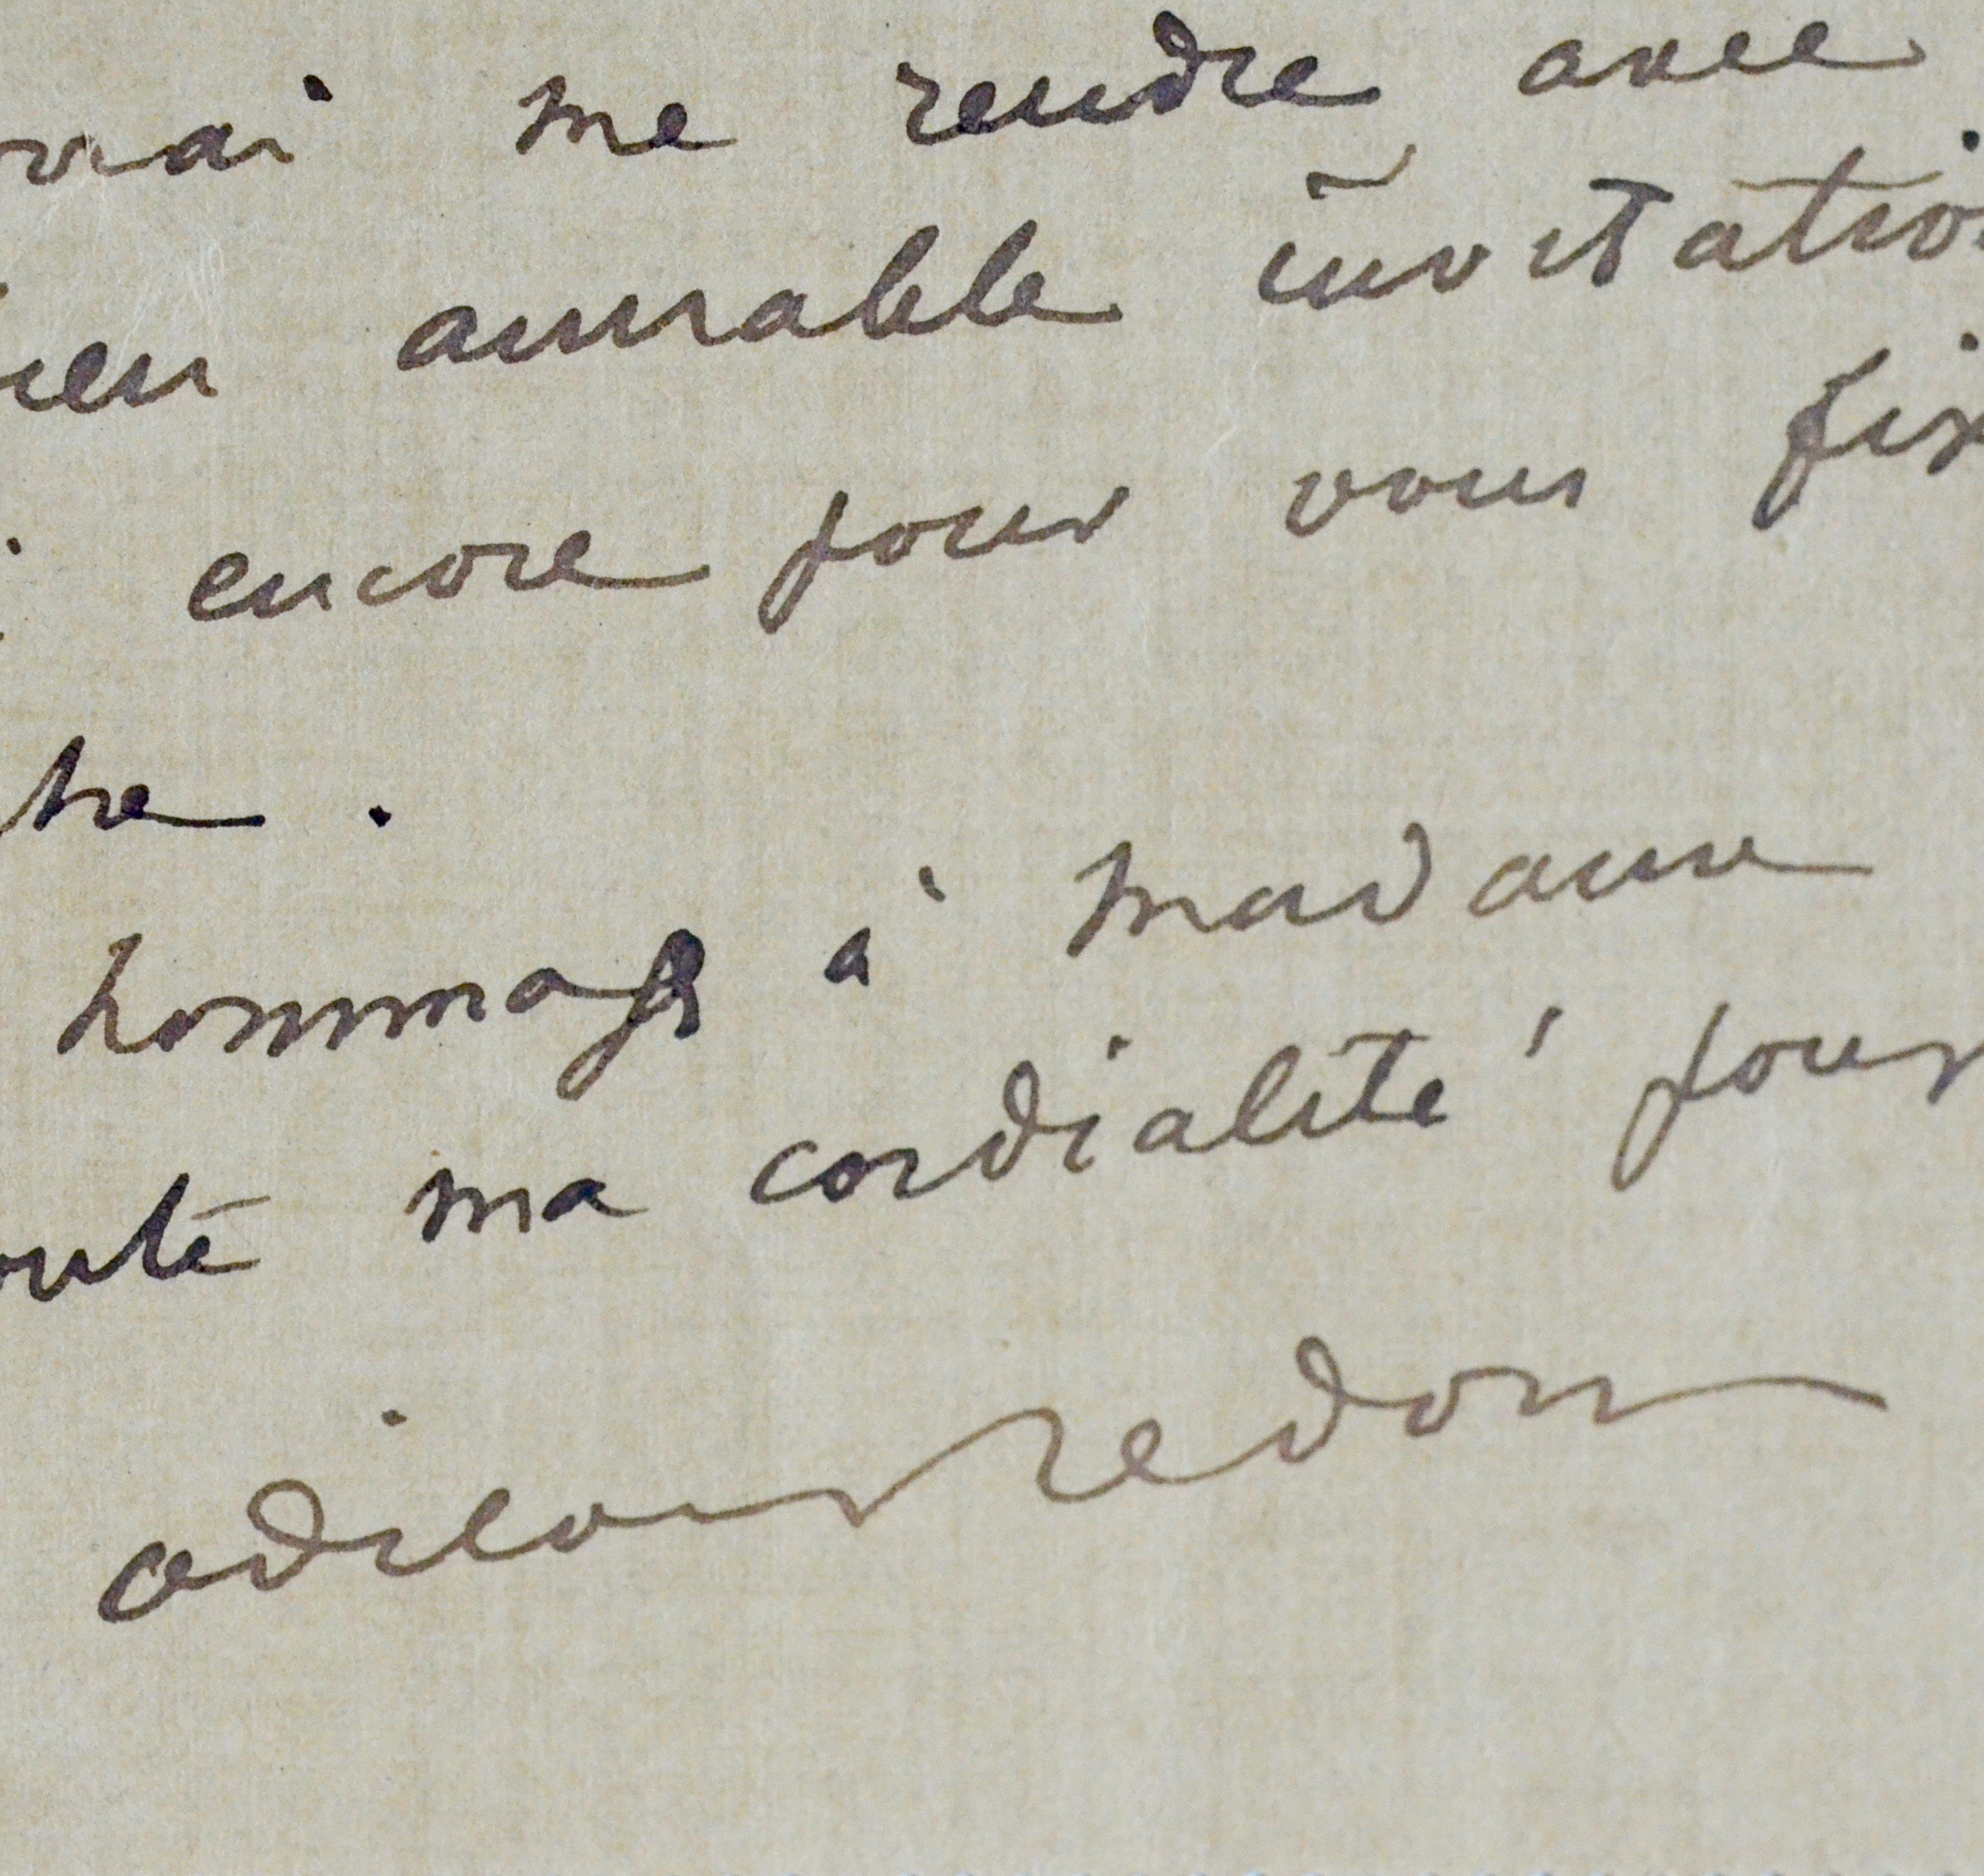 vrai me rendre avec
ien aimable invitatio
encore pour vous fix
tre.
hommages à madame
oute ma cordialité pour
odilon redon